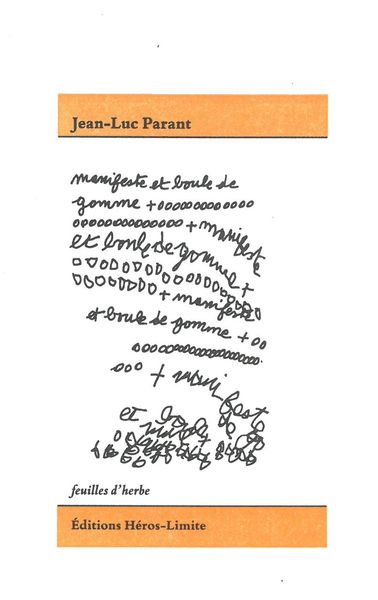 Jean-Luc Parant
manifeste et boule de
gomme +ooooooooooooo
ooooooooooooo + manifeste
et boule de gomme +
oooooooooooooo
ooooooo + manifeste
et boule de gomme + oo
oooooooooooooooooo
ooo + mani fest
et
feuilles d’herbe
Éditions Héros-Limite